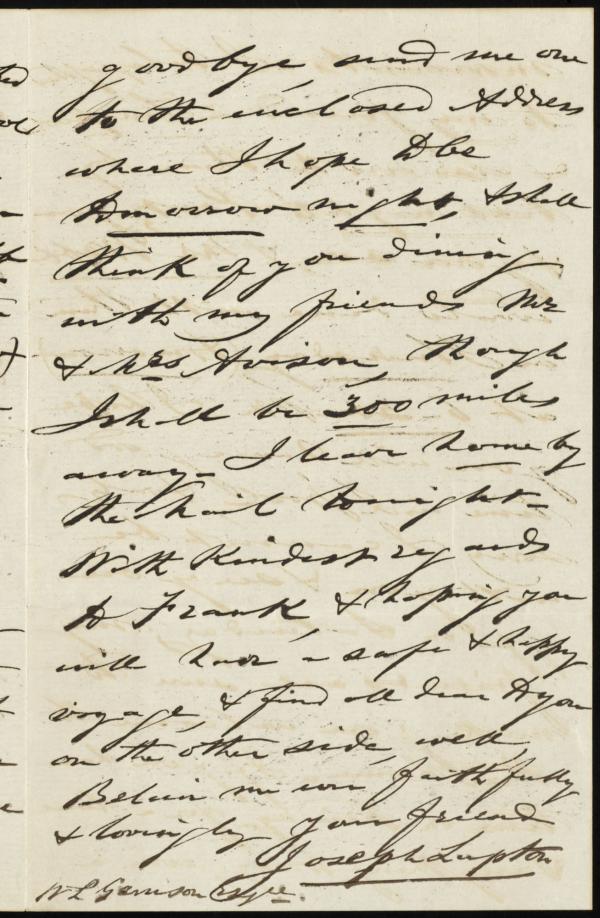 goodbye, send me one
to the enclosed Address
where I hope to be
tomorrow night, & shall
think of you dining
with my friends Mr
& Mrs Avison, though
I shall be 300 miles
away - I leave home by
the Mail tonight -
With kindest regards
to Frank, & hoping you
will have a safe & happy
voyage, & find all dear to you
on the other side, well,
Believe me ever faithfully
& lovingly your friend
Joseph Lupton
W L Garrison Esqre